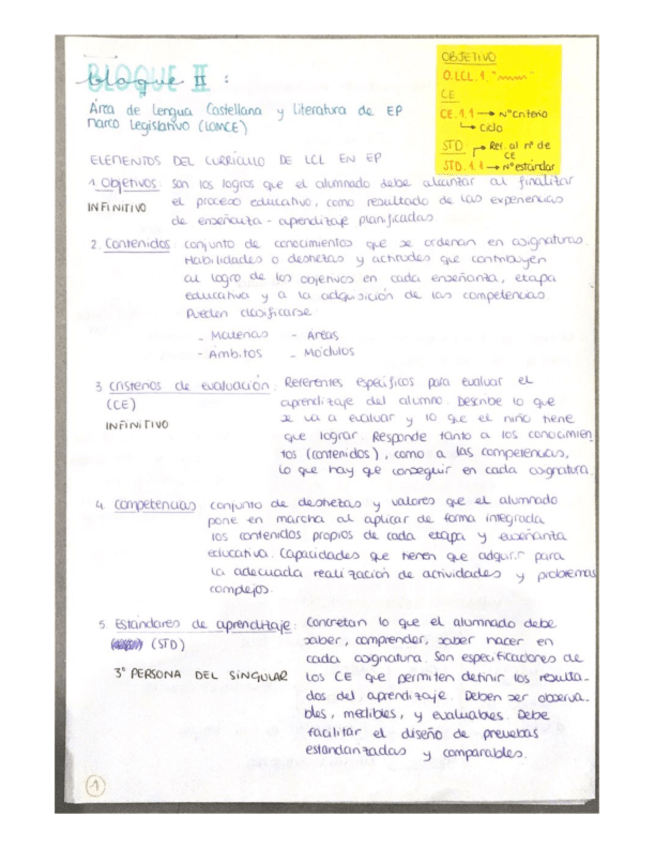 BLOQUE II :
bloque
Área de Lengua Castellana y Literatura de EP
Marco Legislativo (LOMCE)
OBJETIVO
O.LCL.1. "
CE
CE.1.1 → Nº Criterio
↳ Ciclo
STD. → Ref. al nº de
CE
STD.1.1 → Nº estándar
ELEMENTOS DEL CURRÍCULO DE LCL EN EP
1. Objetivos: Son los logros que el alumnado debe alcanzar al finalizar
INFINITIVO el proceso educativo, como resultado de las experiencias
de enseñanza - aprendizaje planificadas.
2. Contenidos conjunto de conocimientos que se ordenan en asignaturas.
Habilidades o destrezas y actitudes que contribuyen
al logro de los objetivos en cada enseñanza, etapa
educativa y a la adquisición de las competencias.
Pueden clasificarse:
- Materias - Áreas
- Ámbitos - Módulos
3. Criterios de evaluación: Referentes específicos para evaluar el
(CE) aprendizaje del alumno. Describe lo que
INFINITIVO se va a evaluar y lo que el niño tiene
que lograr. Responde tanto a los conocimien
tos (contenidos), como a las competencias,
lo que hay que conseguir en cada asignatura.
4. Competencias conjunto de destrezas y valores que el alumnado
pone en marcha al aplicar de forma integrada
los contenidos propios de cada etapa y enseñanza
educativa. Capacidades que tienen que adquirir para
la adecuada realización de actividades y problemas
complejos.
5. Estándares de aprendizaje: Concretan lo que el alumnado debe
(STD) saber, comprender, saber hacer en
cada asignatura. Son especificaciones de
3º PERSONA DEL SINGULAR los CE que permiten definir los resulta-
dos del aprendizaje. Deben ser observa-
bles, medibles, y evaluables. Debe
facilitar el diseño de pruebas
estandarizadas y comparables.
1